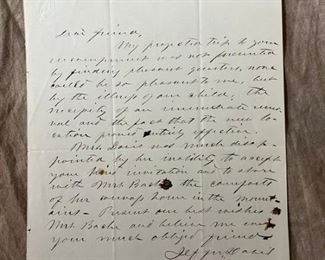 Dear friend,
My projected trip to your
encampment was not prevented
by finding pleasant quarters, none
could be so pleasant to me, but
by the illness of our child, the
necessity of an immediate remo
val and the fact that the new lo
cation proved entirely effective.
Mrs. Davis was much disap-
pointed by her inability to accept
your kind invitation and to share
with Mrs. Bache the comforts
of her canvas home in the mount
ains - Present our best wishes
Mrs. Bache and believe me ever
your much obliged friend
Jeffn. Davis